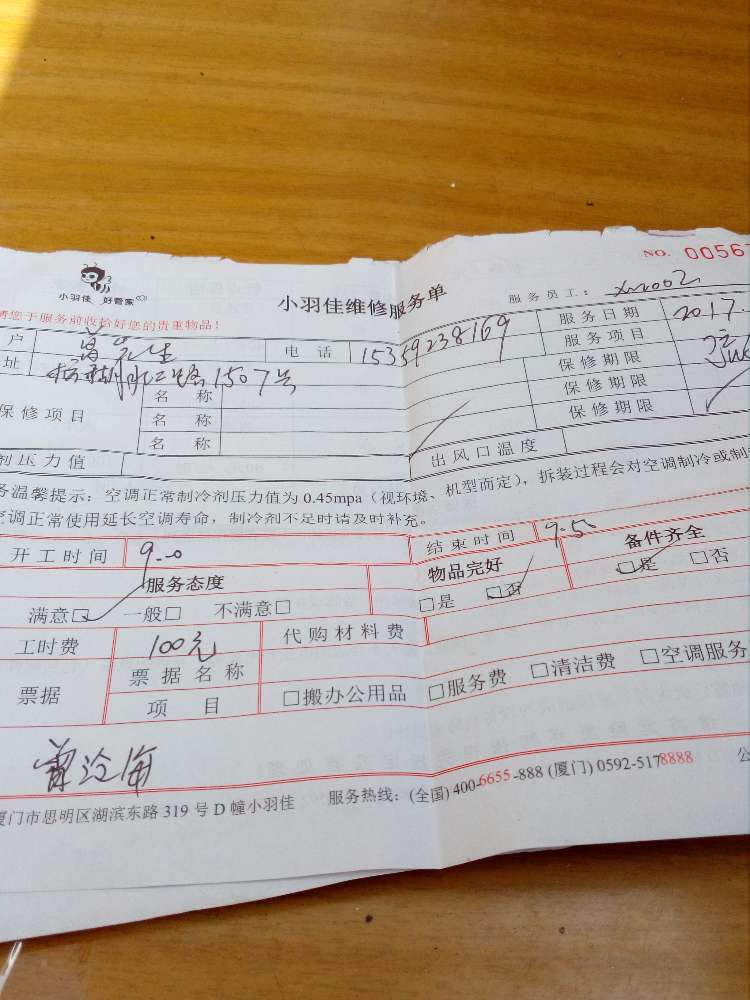 小羽佳 好管家
NO. 0056
小羽佳维修服务单
服务员工：
请您于服务前收拾好您的贵重物品！
户 曾先生 电话 15359238169 服务日期 2017.
址 1507号 服务项目
保修项目 名称 保修期限
名称 保修期限
名称 保修期限
剂压力值 出风口温度
务温馨提示：空调正常制冷剂压力值为 0.45mpa（视环境、机型而定），拆装过程会对空调制冷或制
空调正常使用延长空调寿命，制冷剂不足时请及时补充。
开工时间 结束时间 9.50
服务态度 物品完好 备件齐全
满意□ 一般□ 不满意□ □是 □否 □是 □否
工时费 100元 代购材料费
票据 票据名称 □搬办公用品 □服务费 □清洁费 □空调服务
项目
曾沧海
厦门市思明区湖滨东路 319 号 D 幢小羽佳 服务热线：(全国) 400-6655-888 (厦门) 0592-5178888 公